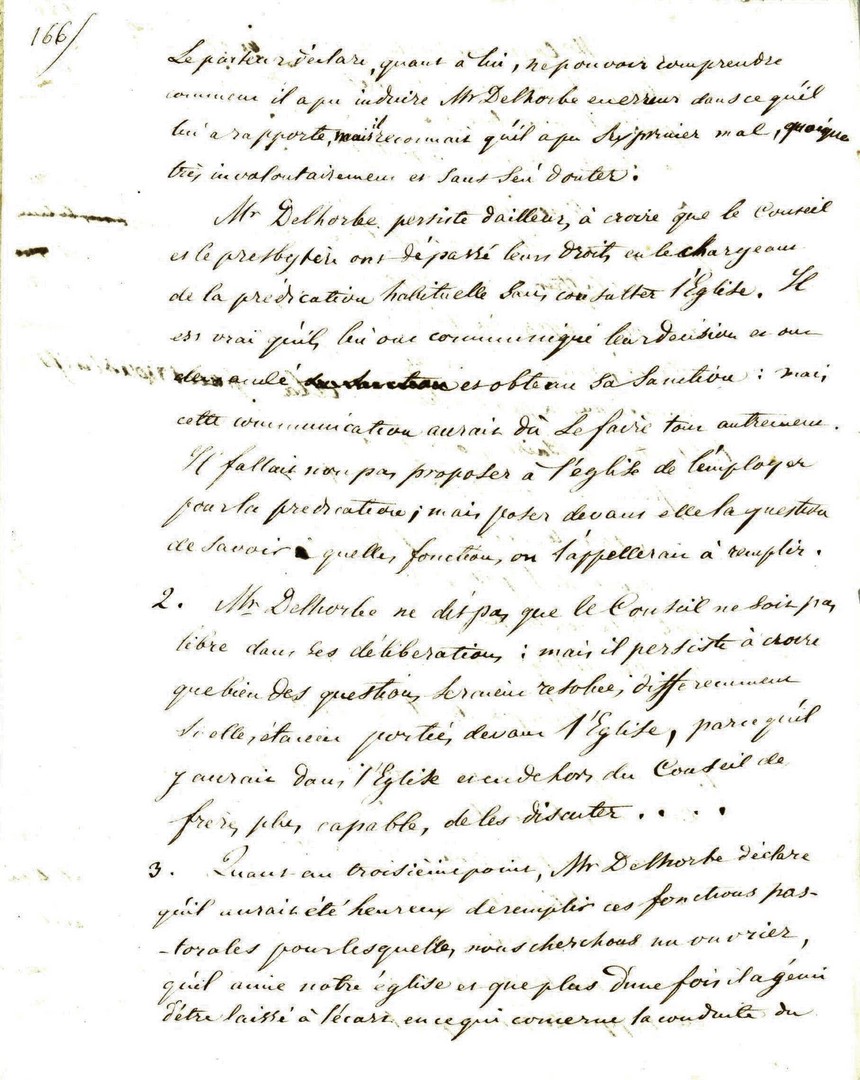 166/
Le pasteur déclare, quant à lui, ne pouvoir comprendre
comment il a pu induire Mr Delhorbe en erreur dans ce qu'il
lui a rapporté, mais il reconnait qu'il a pu s'exprimer mal, quoique
très involontairement et sans s'en douter.
Mr Delhorbe persiste d'ailleurs à croire que le Conseil
et le presbytère ont dépassé leurs droits en le chargeant
de la prédication habituelle sans consulter l'Eglise. Il
est vrai qu'ils lui ont communiqué leur decision et ont
demandé sa sanction et obtenu sa sanction : mais
cette communication aurait dû se faire tout autrement.
Il fallait non pas proposer à l'église de l'employer
pour la predication ; mais poser devant elle la question
de savoir quelles fonctions on l'appellerait à remplir.
2. Mr Delhorbe ne dit pas que le Conseil ne soit pas
libre dans ses délibérations : mais il persiste à croire
que bien des questions seraient resolues differemment
si elles étaient portées devant l'Eglise, parce qu'il
y aurait dans l'Eglise et en dehors du Conseil de
frères plus capables de les discuter . . . .
3. Quant au troisième point, Mr Delhorbe déclare
qu'il aurait été heureux de remplir ces fonctions pas-
-torales pour lesquelles nous cherchons un ouvrier,
qu'il aime notre église et que plus d'une fois il a gémi
d'être laissé à l'écart en ce qui concerne la conduite du